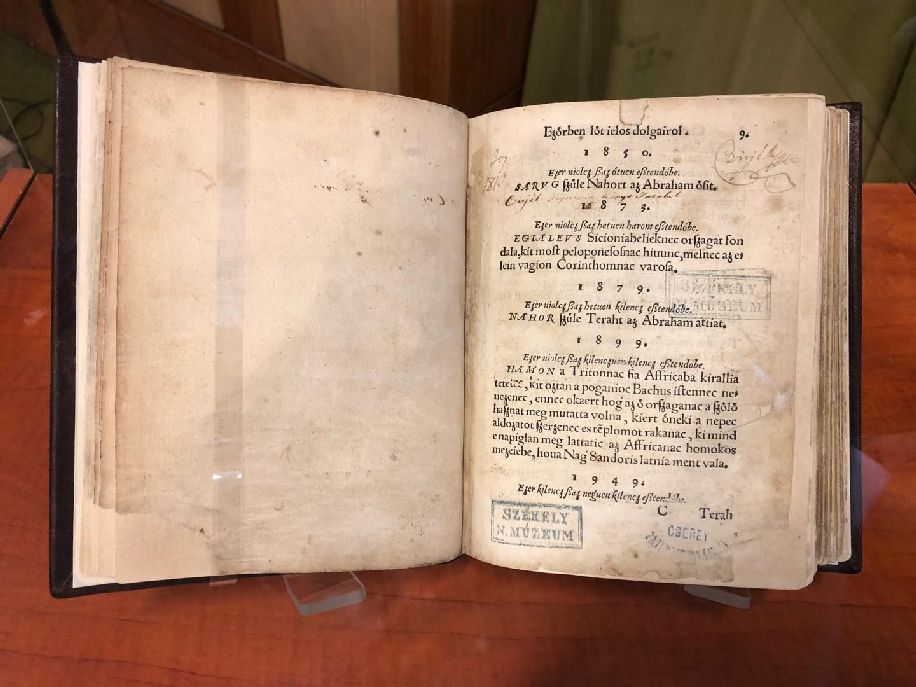 Eʒőrben lőt ielos dolgairol. 9.
1850.
Eʒer niolcʒ ſʒaʒ őtuen eſʒtendőbe.
SARVG ſʒűle Nahort aʒ Abraham őſit.
1873.
Eʒer niolcʒ ſʒaʒ hetuen harom eſʒtendőbe.
EGIALEVS Sicioniabelieknec orſʒagat fon
dala, kit moſt peloponeſoſnac hiiunc, melnec aʒ e⸗
lein vagion Corinthomnac varoſa.
SZÉKELY
N. MÚZEUM
1879.
Eʒer niolcʒ ſʒaʒ hetuen kilencʒ eſʒtendőbe.
NAHOR ſʒűle Teraht aʒ Abraham attiat.
1899.
Eʒer niolcʒ ſʒaʒ kilencʒuen kilencʒ eſʒtendőbe.
HAMON a Tritonnac fia Affricaba kirallia
tetetéc, kit oʒtan a poganioc Bachus iſtennec ne⸗
ueʒenec, ennec okaert hog' aʒ ő orſʒaganac a ſʒőlő
haſʒnat meg mutatta volna, kiert őneki a nepec
aldoʒatot ſʒerʒenec es tẽplomot rakanac, ki mind
e napiglan meg lattatic aʒ Affricanac homokos
meʒeiebe, houa Nag' Sandoris latnia ment vala.
1949.
Eʒer kilencʒ ſʒaʒ neguen kilencʒ eſʒtendőbe.
C Terah
SZÉKELY
N. MÚZEUM
CSEREY